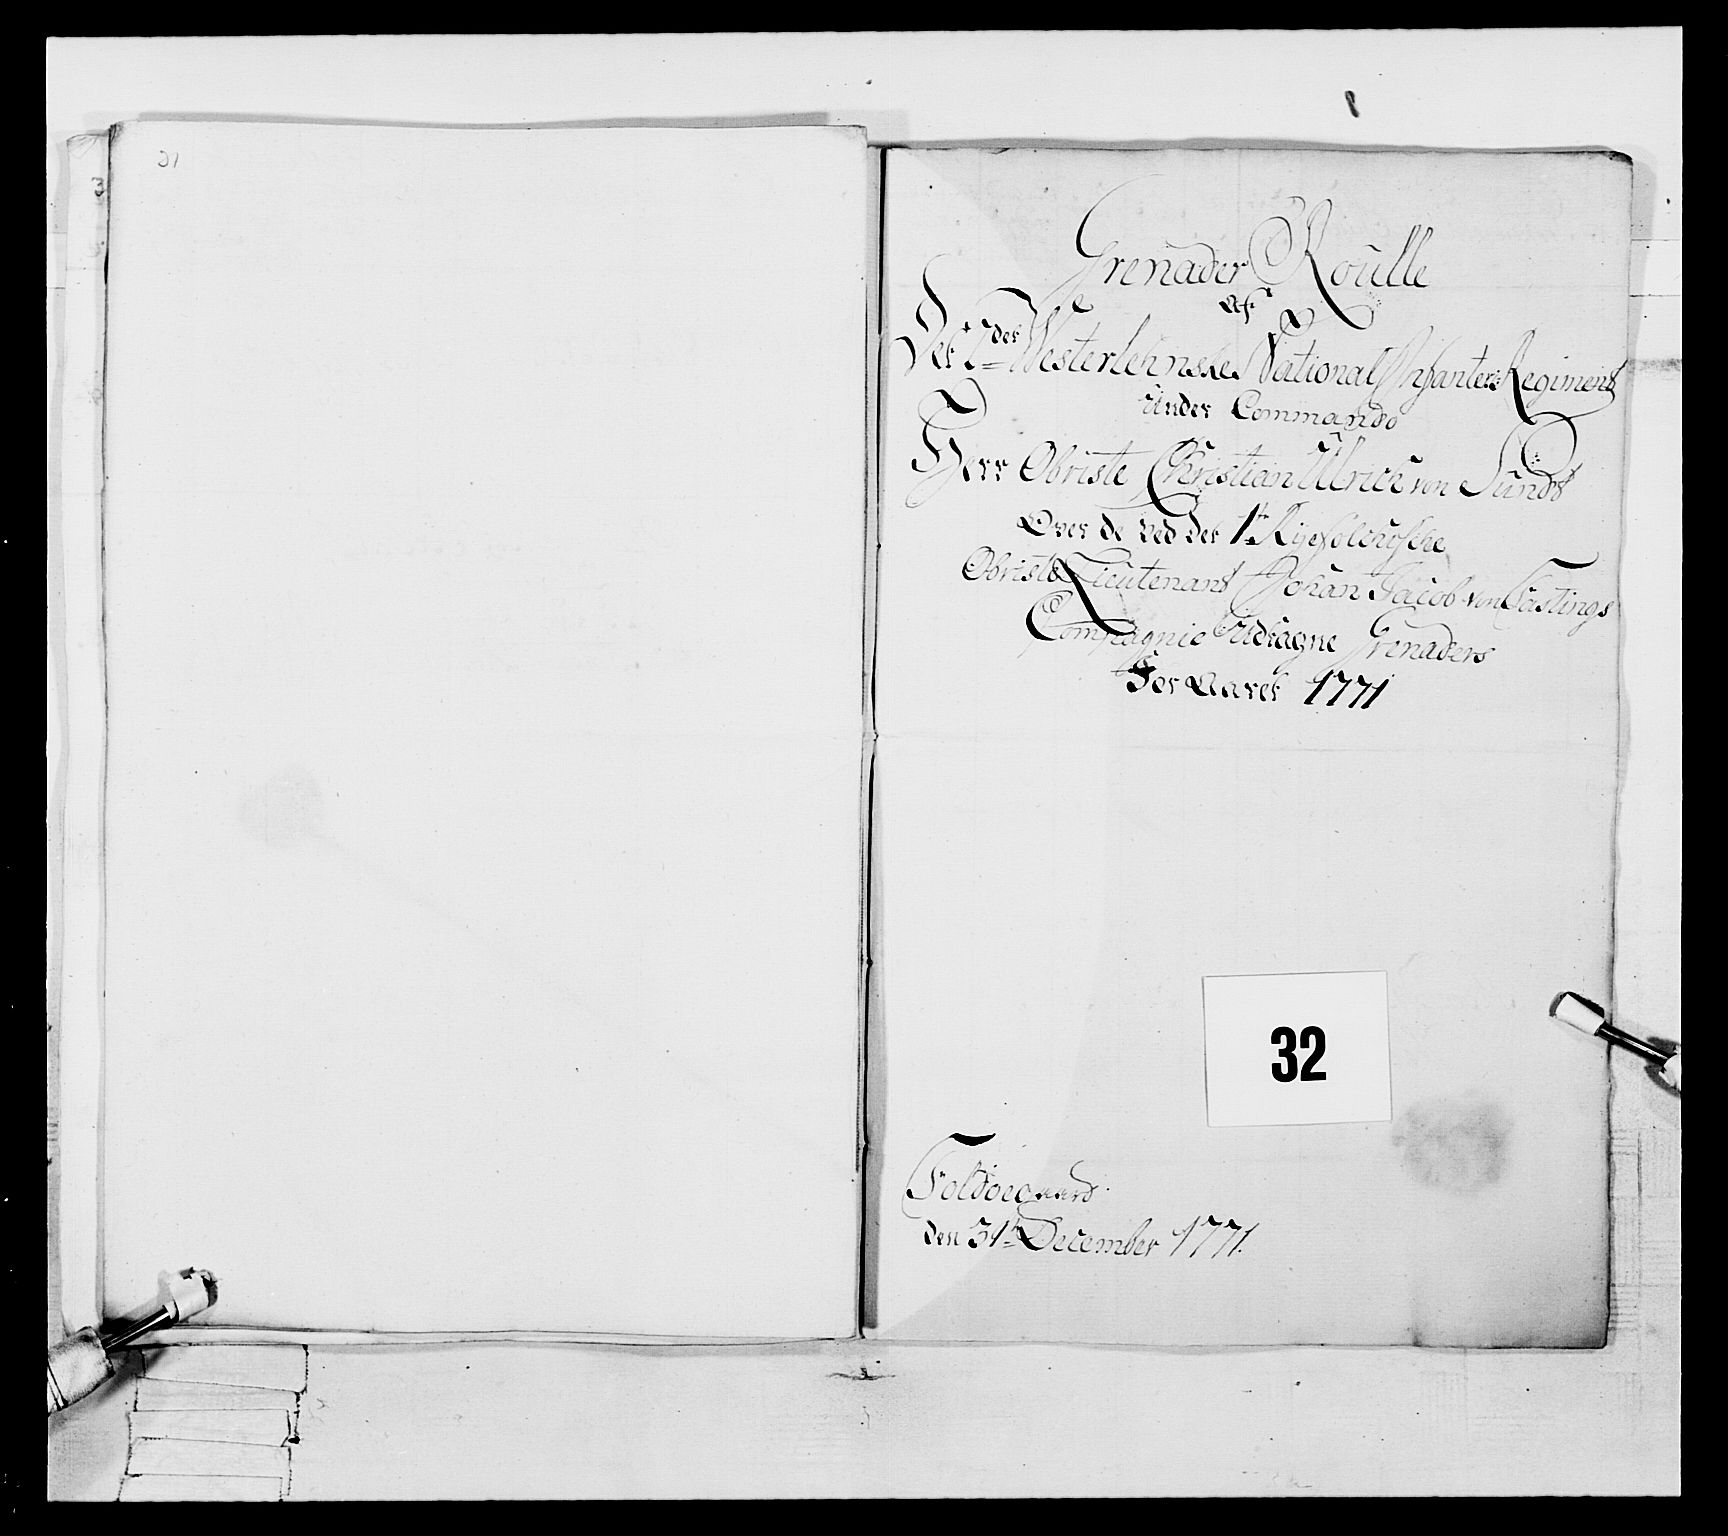 31
Grenader Roulle
Af
Det 2det Westerlehnske National Infanterie Regiment
Under Commando
Herr Obriste Christian Ulrich von Sundt
Over de ved det 1te Ryefylchische
Obriste Lieutenant Johan Jacob von Fastings
Compagnie Udtagne Grenaders
For Aaret 1771
32
Toldoegaard
den 31te December 1771.